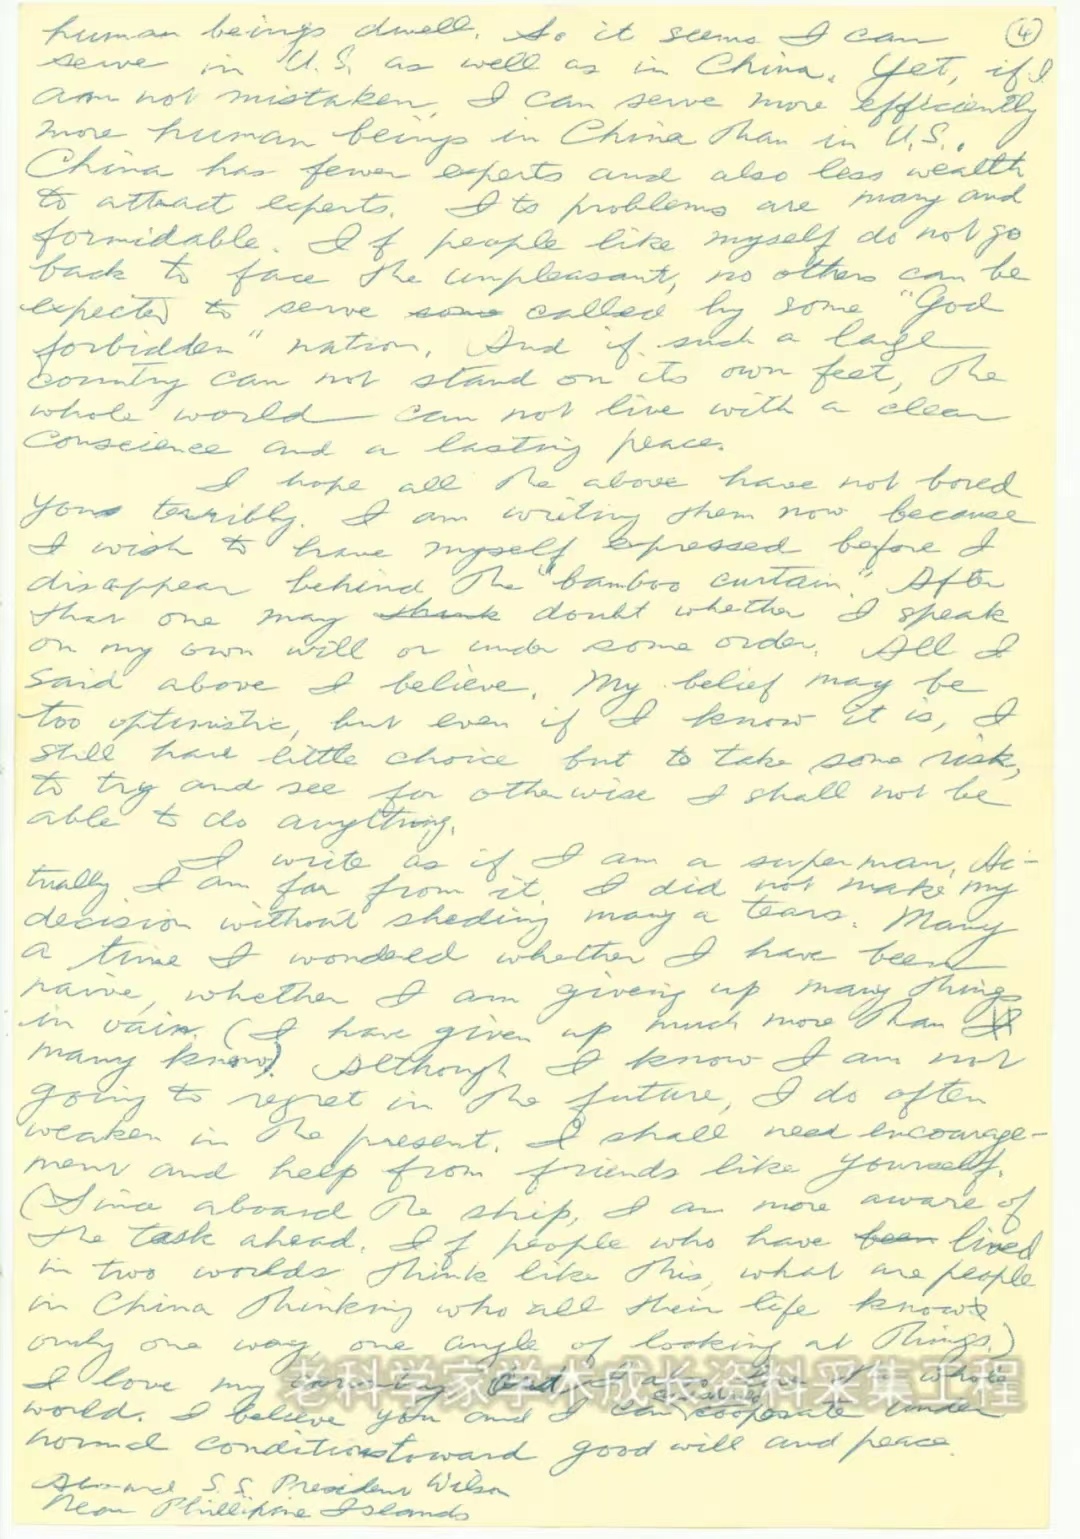 human beings dwell. So it seems I can ④
serve in U.S. as well as in China. Yet, if I
am not mistaken, I can serve more efficiently
more human beings in China than in U.S..
China has fewer experts and also less wealth
to attract experts. Its problems are many and
formidable. If people like myself do not go
back to face the unpleasant, no others can be
expected to serve some called by some "God
forbidden" nation. And if such a large
country can not stand on its own feet, the
whole world can not live with a clear
conscience and a lasting peace.
I hope all the above have not bored
you terribly. I am writing them now because
I wish to have myself expressed before I
disappear behind the "bamboo curtain". After
that one may think doubt whether I speak
on my own will or under some order. All I
said above I believe. My belief may be
too optimistic, but even if I know it is, I
still have little choice but to take some risk,
to try and see for otherwise I shall not be
able to do anything.
I write as if I am a super man. Ac-
tually I am far from it. I did not make my
decision without sheding many a tears. Many
a time I wondered whether I have been
naive, whether I am giving up many things
in vain. (I have given up much more than
many know). Although I know I am not
going to regret in the future, I do often
weaken in the present. I shall need encourage-
ment and help from friends like yourself.
(Since aboard the ship, I am more aware of
the task ahead. If people who have been lived
in two worlds think like this, what are people
in China thinking who all their life knows
only one way, one angle of looking at things.)
I love my country and also love the whole
老科学家学术成长资料采集工程
world. I believe you and I can cooperate under
normal conditions toward good will and peace.
Aboard S.S. President Wilson
Near Phillipine Islands